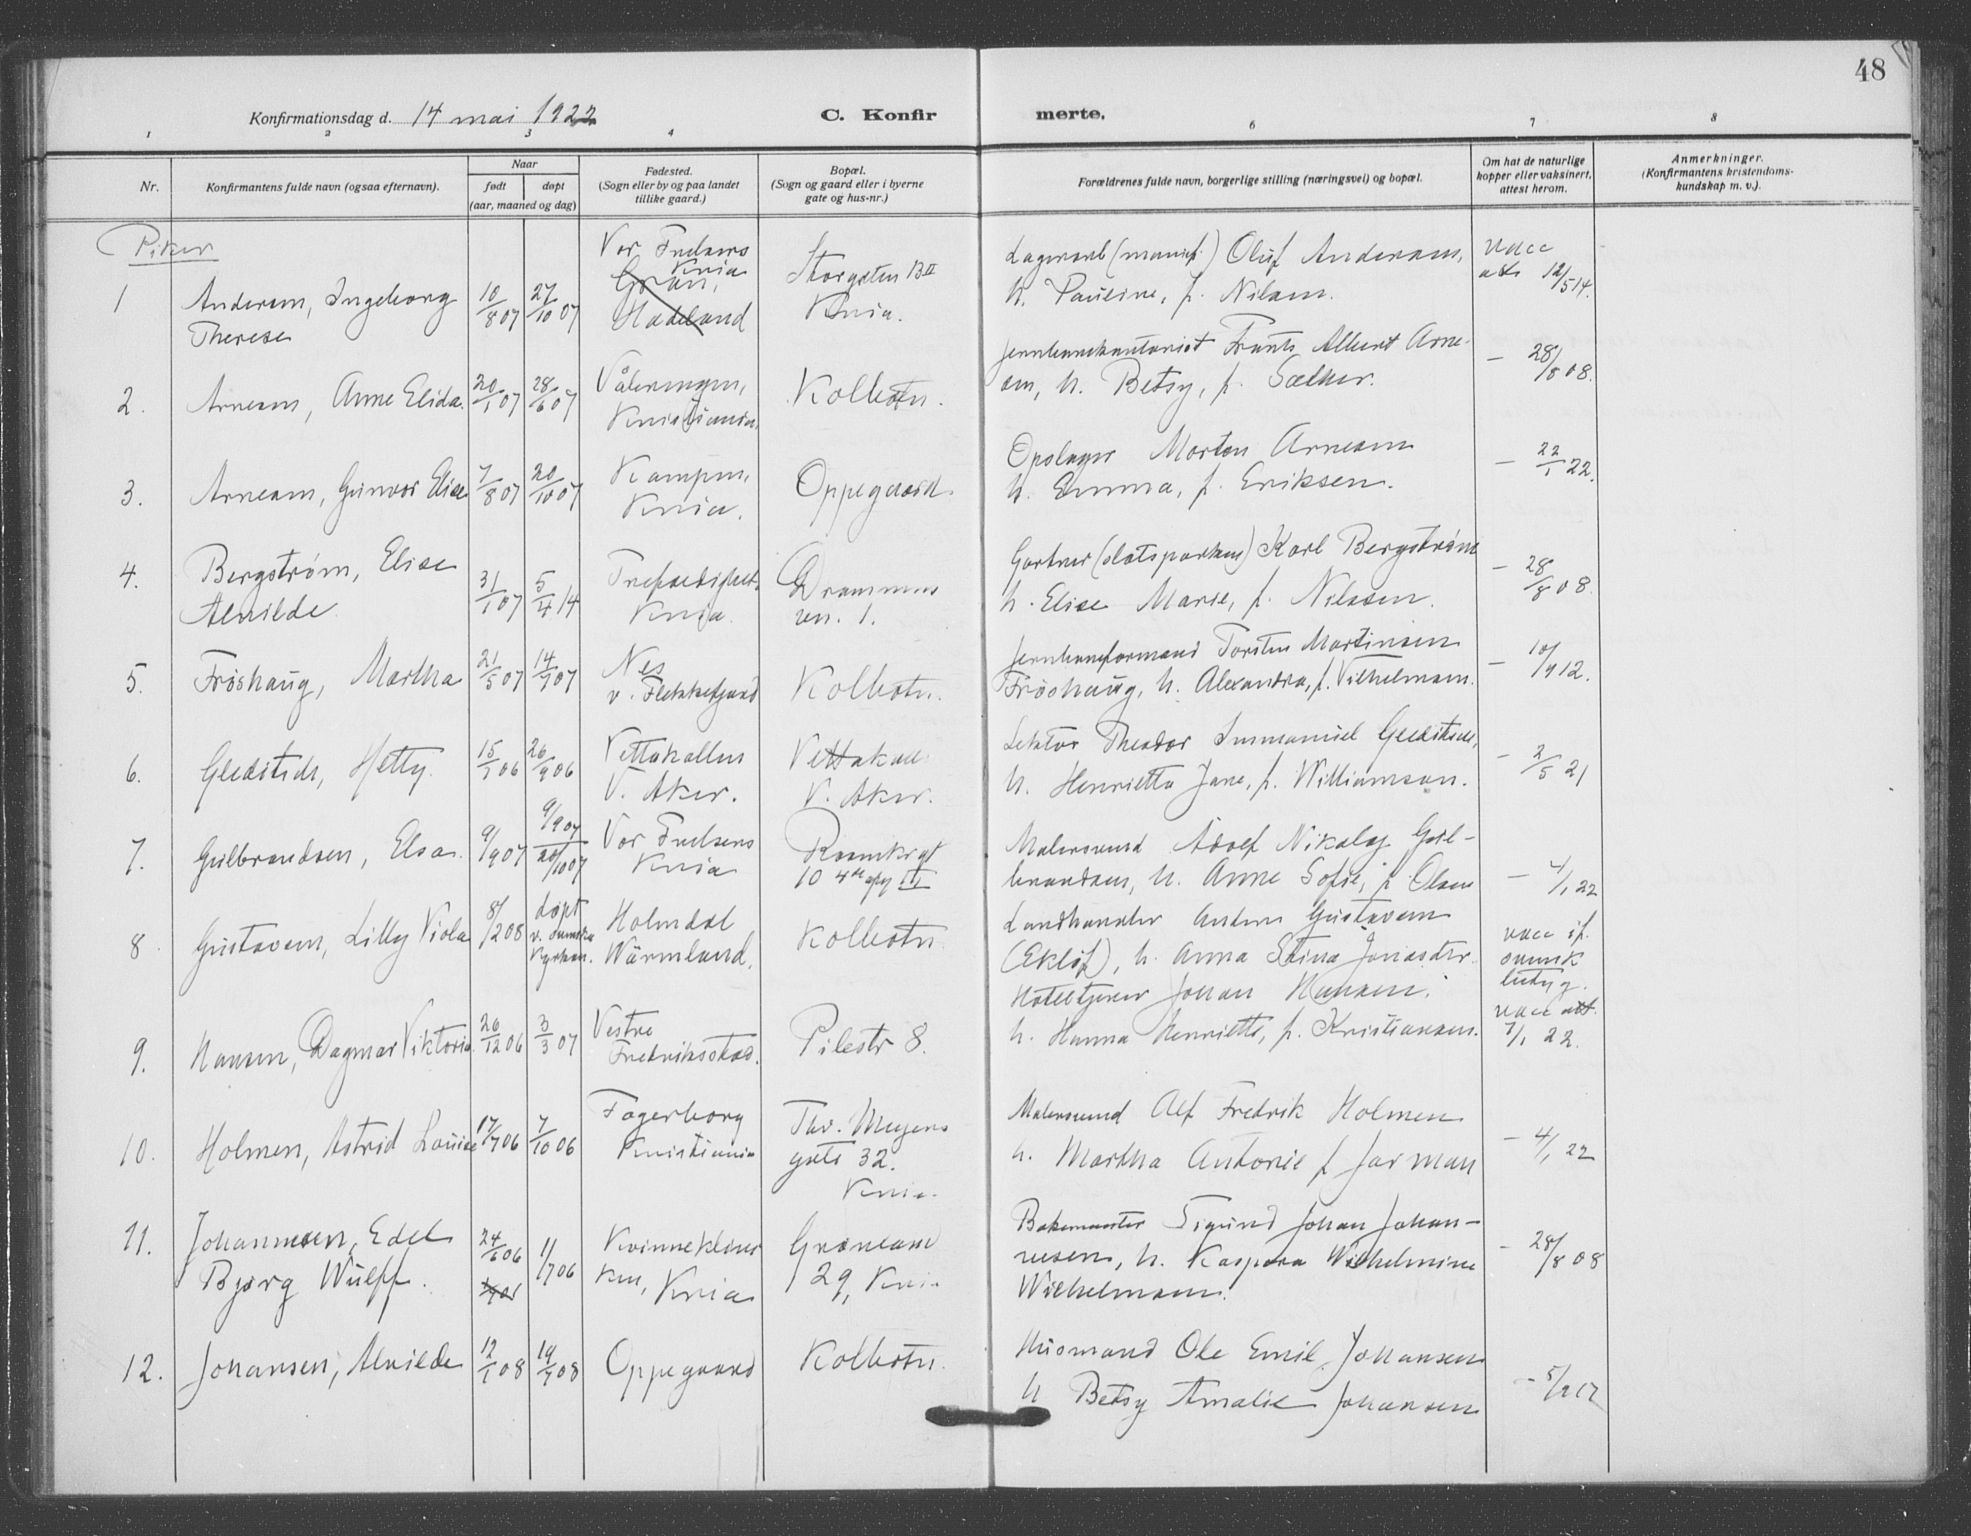 48
Konfirmationsdag d. 14 mai 1922
C. Konfirmerte.
1 2 3 4 6 7 8
Nr.
Konfirmantens fulde navn (ogsaa efternavn).
Naar
født døpt
(aar, maaned og dag)
Fødested.
(Sogn eller by og paa landet
tillike gaard.)
Bopæl.
(Sogn og gaard eller i byerne
gate og hus-nr.)
Forældrenes fulde navn, borgerlige stilling (næringsvei) og bopæl.
Om hat de naturlige
kopper eller vaksinert,
attest herom.
Anmerkninger.
(Konfirmantens kristendoms-
kundskap m. v.).
Piker
1 Andersen, Ingeborg
Therese
10/8 07 27/10 07
Vor Frelsers
Knia
Gran,
Hadeland
Storgaten 13 II
Knia.
Lagerarb Oluf Andersen,
h. Pauline, f. Nilsen.
vacc
att 12/5 14.
2. Arnesen, Anne Elida.
20/1 07 28/6 07
Vålerengen,
Kristiania.
Kolbotn.
Frants Albert Arne-
sen, h. Betsy, f. Sæther.
— 28/8 08.
3. Arnesen, Gunvor Elise
7/8 07 20/10 07
Kampen,
Knia.
Oppegaard.
Opslager Morten Arnesen
h. Emma, f. Eriksen.
— 22/1 22.
4. Bergstrøm, Elise
Alvilde
31/1 07 5/4 14
Knia.
Drammens
ven. 1.
Gartner (slotsparken) Karl Bergstrøm
h. Elise Marie, f. Nilssen.
— 28/8 08.
5. Frøshaug, Martha
21/5 07 14/7 07
Nes
v. Flekkefjord
Kolbotn.
Jernbaneformand Torsten Martinsen
Frøshaug, h. Alexandra, f. Vilhelmsen.
— 10/9 12.
6. Gleditsch, Hetty.
15/7 06 26/9 06
Vettakollen
V. Aker.
Vettakoll
V. Aker.
Lektor Theodor Immanuel Gleditsch,
h. Henrietta Jane, f. Williamson.
— 2/5 21
7. Gulbrandsen, Elsa.
9/9 07 9/9 07
20/10 07
Vor Frelsers
Knia
Rosenkrgt
10 III
Malersvend Adolf Nikolay Gul-
brandsen, h. Anne Sofie, f. Olsen
— 4/1 22
8 Gustavsen, Lilly Viola
8/2 08 døpt
v. svenska
kyrkan.
Holmdal
Wärmland.
Kolbotn
Landhandler Anders Gustavsen
(Eklöf), h. Anna Stina Jonasdtr.
vacc if.
svensk
betyg.
9. Hansen, Dagmar Viktoria
26/12 06 3/3 07
Vestre
Fredriksstad.
Pilestr 8.
Hotelltjener Johan Hansen,
h. Hanna Henriette, f. Kristiansen.
vacc att.
7/1 22.
10. Holmen, Astrid Louise
17/7 06 7/10 06
Fagerborg
Kristiania
Thv. Meyers
gate 32.
Knia.
Malersvend Alf Fredrik Holmen
h. Martha Antonie f Jarman
— 4/1 22
11. Johannesen, Edel
Bjørg Wulff.
24/6 06 1/7 06
Kvinneklinikken,
Knia
Grønland
29, Knia
Bakermester Sigurd Johan Johan-
nesen, h. Kaspara Wilhelmine
Wilhelmsen.
— 28/8 08
12. Johansen, Alvilde
12/1 08 19/7 08
Oppegaard
Kolbotn.
Husmand Ole Emil Johansen
h Betsy Amalie Johansen